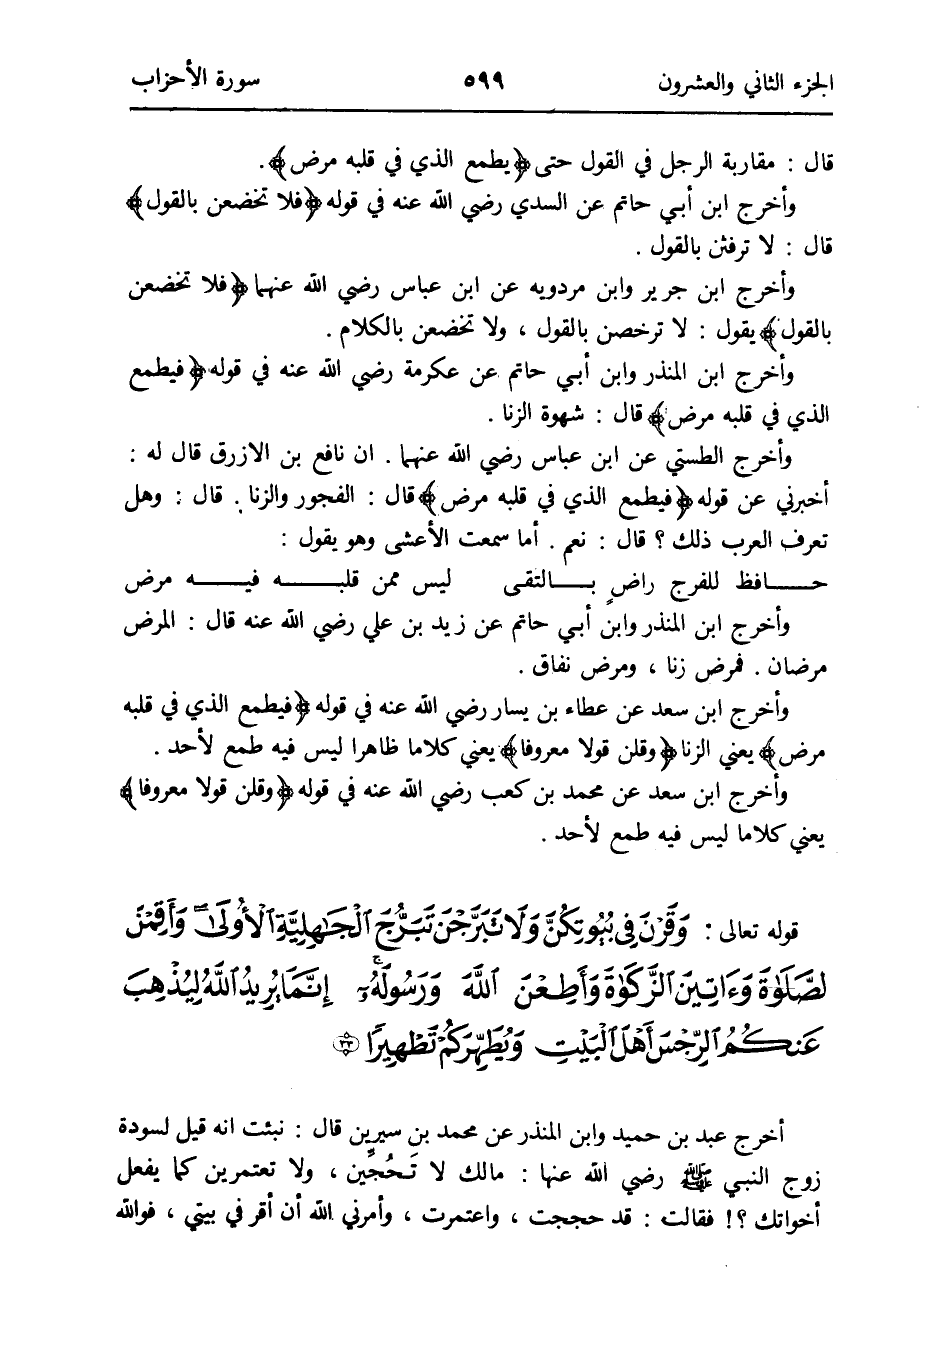 الجزء الثاني والعشرون ٥٩٩ سورة الأحزاب
قال : مقاربة الرجل في القول حتى ﴿يطمع الذي في قلبه مرض﴾ .
وأخرج ابن أبي حاتم عن السدي رضي الله عنه في قوله ﴿فلا تخضعن بالقول﴾
قال : لا ترفثن بالقول .
وأخرج ابن جرير وابن مردويه عن ابن عباس رضي الله عنهما ﴿فلا تخضعن
بالقول﴾ يقول : لا ترخصن بالقول ، ولا تخضعن بالكلام .
وأخرج ابن المنذر وابن أبي حاتم عن عكرمة رضي الله عنه في قوله ﴿فيطمع
الذي في قلبه مرض﴾ قال : شهوة الزنا .
وأخرج الطستي عن ابن عباس رضي الله عنهما . ان نافع بن الازرق قال له :
أخبرني عن قوله ﴿فيطمع الذي في قلبه مرض﴾ قال : الفجور والزنا . قال : وهل
تعرف العرب ذلك ؟ قال : نعم . أما سمعت الأعشى وهو يقول :
حــافظ للفرج راضٍ بــالتقى ليس ممن قلبــه فيــه مرض
وأخرج ابن المنذر وابن أبي حاتم عن زيد بن علي رضي الله عنه قال : المرض
مرضان . فمرض زنا ، ومرض نفاق .
وأخرج ابن سعد عن عطاء بن يسار رضي الله عنه في قوله ﴿فيطمع الذي في قلبه
مرض﴾ يعني الزنا ﴿وقلن قولا معروفا﴾ يعني كلاما ظاهرا ليس فيه طمع لأحد .
وأخرج ابن سعد عن محمد بن كعب رضي الله عنه في قوله ﴿وقلن قولا معروفا﴾
يعني كلاما ليس فيه طمع لأحد .
قوله تعالى : وَقَرْنَ فِي بُيُوتِكُنَّ وَلَا تَبَرَّجْنَ تَبَرُّجَ ٱلْجَٰهِلِيَّةِ ٱلْأُولَىٰ وَأَقِمْنَ
لصَّلَوٰةَ وَءَاتِينَ ٱلزَّكَوٰةَ وَأَطِعْنَ ٱللَّهَ وَرَسُولَهُۥٓ ۚ إِنَّمَا يُرِيدُ ٱللَّهُ لِيُذْهِبَ
عَنكُمُ ٱلرِّجْسَ أَهْلَ ٱلْبَيْتِ وَيُطَهِّرَكُمْ تَطْهِيرًا ٣٣
أخرج عبد بن حميد وابن المنذر عن محمد بن سيرين قال : نبئت انه قيل لسودة
زوج النبي ﷺ رضي الله عنها : مالك لا تَحُجِّين ، ولا تعتمرين كما يفعل
أخواتك ؟! فقالت : قد حججت ، واعتمرت ، وأمرني الله أن أقر في بيتي ، فوالله